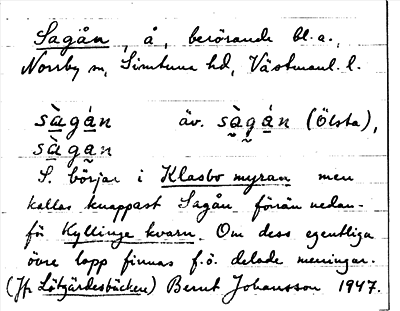 Sagån, å, berörande bl.a.,
Norrby sn, Simtuna hd, Västmanl. l.
sàgán äv. sàgán (Ölsta),
sàgan
S. börjar i Klasbo myran men
kallas knappast Sagån förrän nedan-
fö Kyllinge kvarn. Om dess egentliga
övre lopp finnas f.ö. delade meningar.
(Jfr Lötgärdesbäcken) Bernt Johansson 1947.